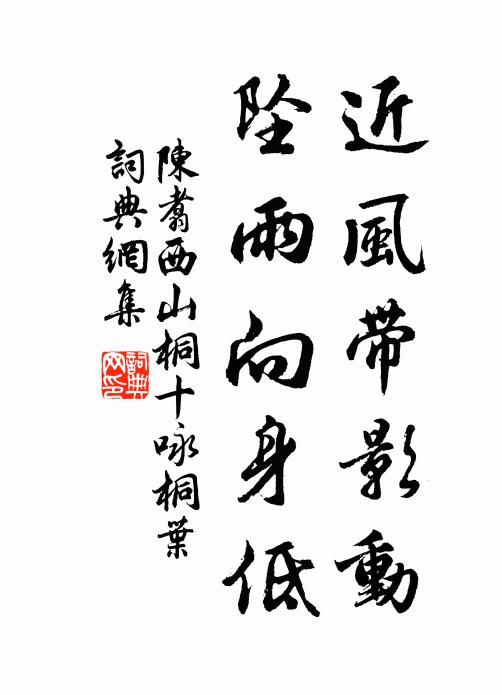 近風帶影動
坠雨向身低
陳翥西山桐十咏桐葉
詞典網集
詞典
网印